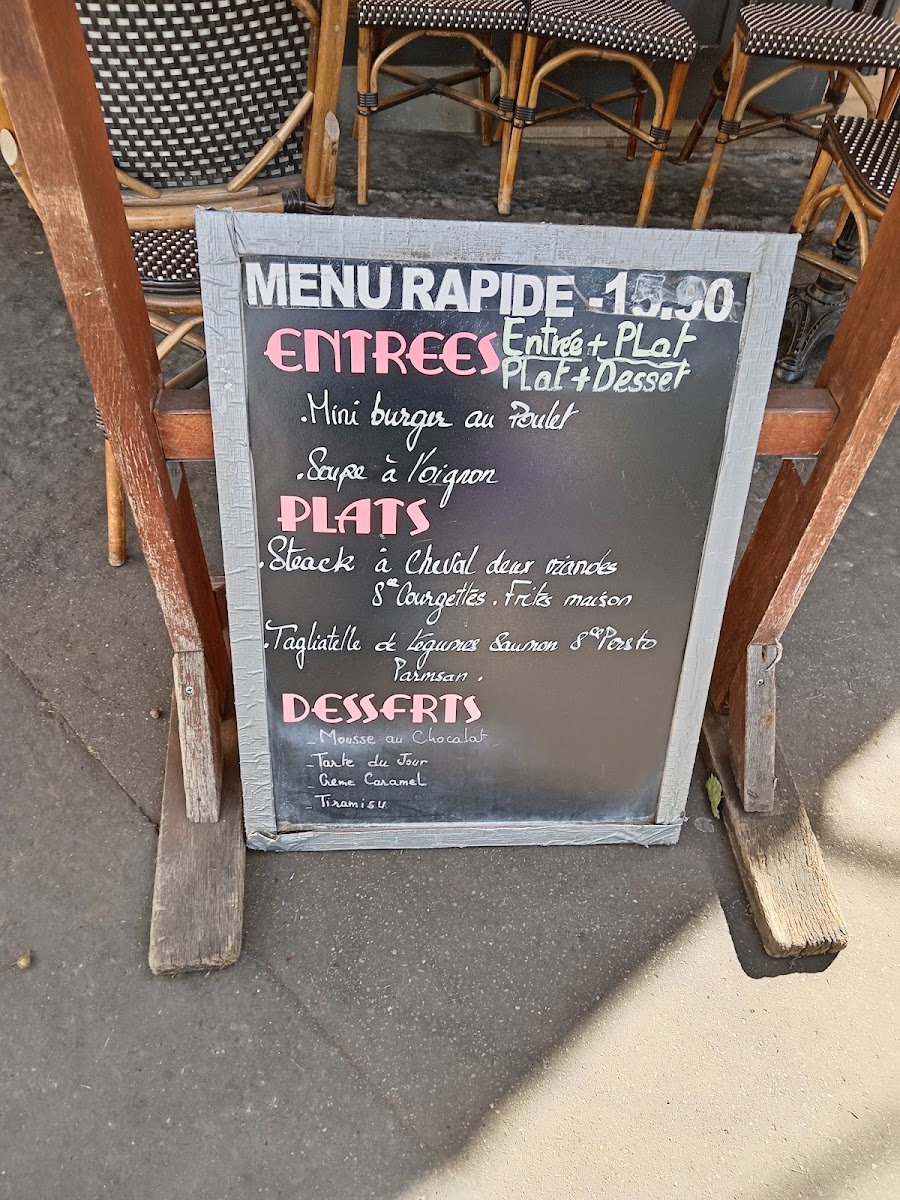 MENU RAPIDE -15.90
ENTREES
Entrée + PLat
Plat + Desset
.Mini burger au Poulet
.Soupe à l'oignon
PLATS
.Steack à Cheval deux viandes
Sce Courgettes. Frites maison
.Tagliatelle de Légumes Saumon Sce Persto
Parmsan.
DESSERTS
- Mousse au Chocolat
- Tarte du Jour
- Creme Caramel
- Tiramisu